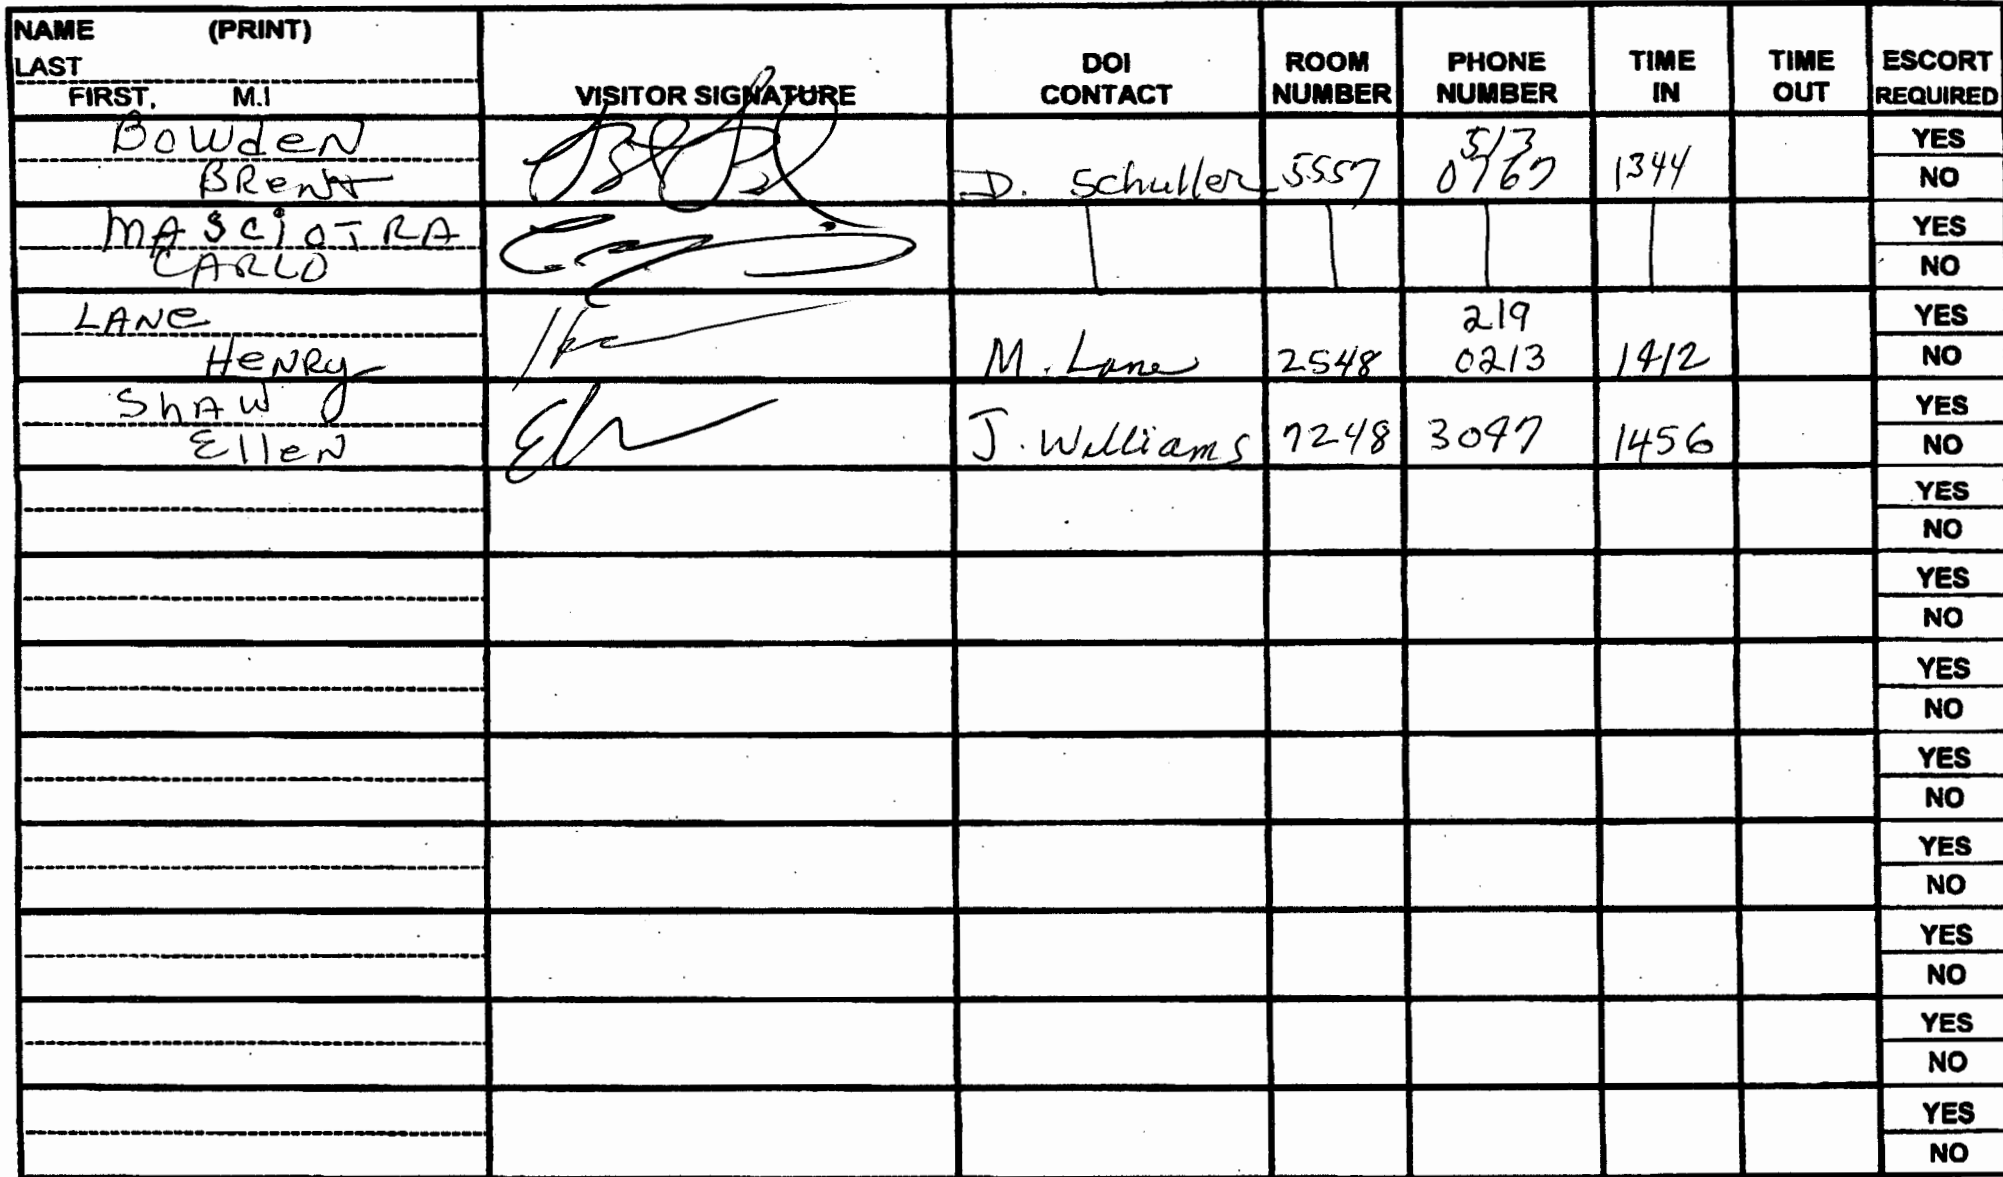 NAME (PRINT)
LAST
FIRST, M.I
VISITOR SIGNATURE
DOI CONTACT
ROOM NUMBER
PHONE NUMBER
TIME IN
TIME OUT
ESCORT REQUIRED
Bowden
Brent
D. Schuller 5557 513 0767 1344
YES
NO
MASCIOTRA
CARLO
YES
NO
LANe
HeNRy
M. Lane 2548 219 0213 1412
YES
NO
ShAW
ElleN
J. Williams 7248 3047 1456
YES
NO
YES
NO
YES
NO
YES
NO
YES
NO
YES
NO
YES
NO
YES
NO
YES
NO